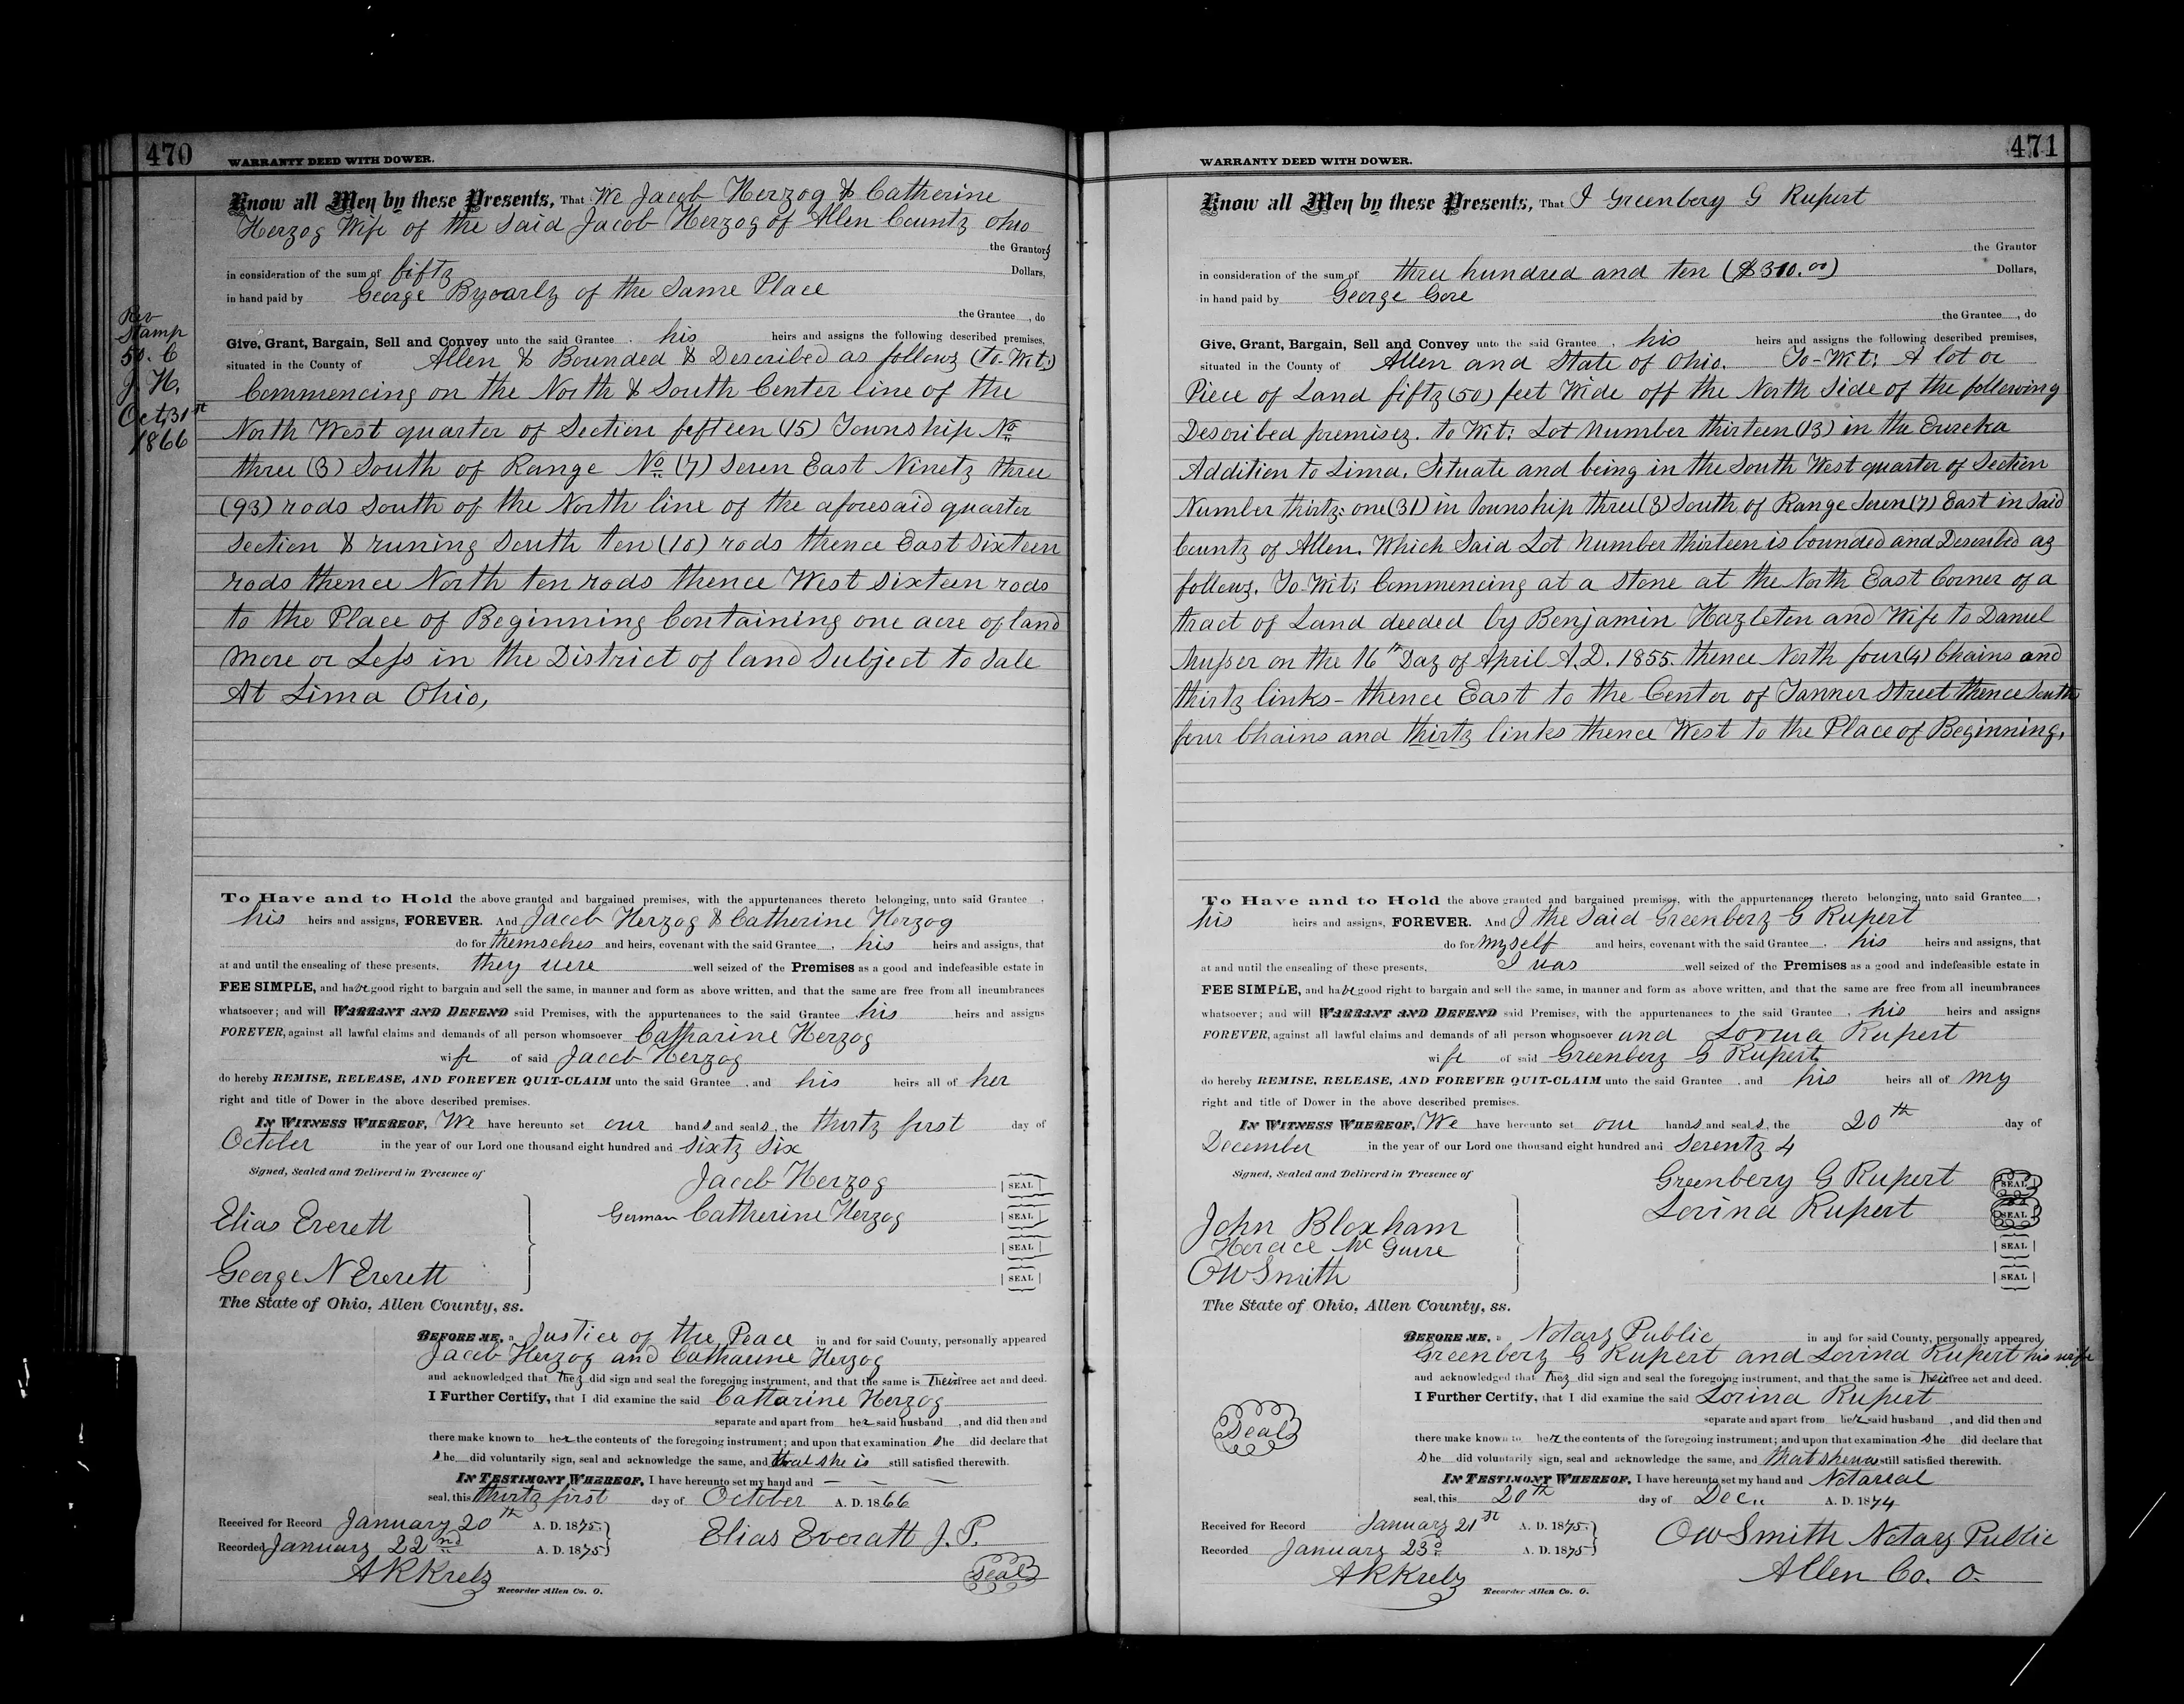 470
WARRANTY DEED WITH DOWER.
Know all Men by these Presents, That We Jacob Herzog & Catherine
Herzog Wife of the Said Jacob Herzog of Allen County Ohio
the Grantors
in consideration of the sum of fifty Dollars,
in hand paid by George Byoarly of the Same Place
the Grantee, do
Give, Grant, Bargain, Sell and Convey unto the said Grantee, his heirs and assigns the following described premises,
situated in the County of Allen & Bounded & Described as follows (to-Wit:)
Rev
Stamp
50. C
J. H.
Oct, 31st
1866
Commencing on the North & South Center line of the
North West quarter of Section fefteen (15) Township No
three (3) South of Range No (7) Seven East Ninety three
(93) rods South of the North line of the aforesaid quarter
Section & runing South ten (10) rods thence East Sixteen
rods thence North ten rods thence West Sixteen rods
to the Place of Beginning Containing one acre of land
more or Less in the District of land Subject to Sale
At Lima Ohio,
To Have and to Hold the above granted and bargained premises, with the appurtenances thereto belonging, unto said Grantee,
his heirs and assigns, FOREVER. And Jacob Herzog & Catherine Herzog
do for themselves and heirs, covenant with the said Grantee, his heirs and assigns, that
at and until the ensealing of these presents, they were well seized of the Premises as a good and indefeasible estate in
FEE SIMPLE, and have good right to bargain and sell the same, in manner and form as above written, and that the same are free from all incumbrances
whatsoever; and will WARRANT AND DEFEND said Premises, with the appurtenances to the said Grantee his heirs and assigns
FOREVER, against all lawful claims and demands of all person whomsoever Catharine Herzog
wife of said Jacob Herzog
do hereby REMISE, RELEASE, AND FOREVER QUIT-CLAIM unto the said Grantee, and his heirs all of her
right and title of Dower in the above described premises.
IN WITNESS WHEREOF, We have hereunto set our hands and seals, the thirty first day of
October in the year of our Lord one thousand eight hundred and Sixty Six
Signed, Sealed and Deliverd in Presence of
Jacob Herzog SEAL
Elias Everett
German Catherine Herzog SEAL
SEAL
George N Everett
SEAL
The State of Ohio, Allen County, ss.
BEFORE ME, a Justice of the Peace in and for said County, personally appeared
Jacob Herzog and Catharine Herzog
and acknowledged that they did sign and seal the foregoing instrument, and that the same is Their free act and deed.
I Further Certify, that I did examine the said Catharine Herzog
separate and apart from her said husband, and did then and
there make known to her the contents of the foregoing instrument; and upon that examination she did declare that
she did voluntarily sign, seal and acknowledge the same, and that she is still satisfied therewith.
IN TESTIMONY WHEREOF, I have hereunto set my hand and — — —
seal, this thirty first day of October A. D. 1866
Received for Record January 20th A. D. 1875.
Recorded January 22nd A. D. 1875
Elias Everatt J. P.
Seal
A R Krebs
Recorder Allen Co. O.
471
WARRANTY DEED WITH DOWER.
Know all Men by these Presents, That I Greenbery G Rupert
the Grantor
in consideration of the sum of three hundred and ten ($310.00) Dollars,
in hand paid by George Gore
the Grantee, do
Give, Grant, Bargain, Sell and Convey unto the said Grantee, his heirs and assigns the following described premises,
situated in the County of Allen and State of Ohio. To-Wit: A lot or
Piece of Land fifty (50) feet Wide off the North Side of the following
Described premises. to Wit: Lot Number thirteen (13) in the Eureka
Addition to Lima. Situate and being in the South West quarter of Section
Number thirty-one (31) in Township three (3) South of Range Seven (7) East in Said
County of Allen. Which Said Lot Number thirteen is bounded and Described as
follows. To-Wit: Commencing at a Stone at the North East Corner of a
tract of Land deeded by Benjamin Hazleton and Wife to Daniel
Musser on the 16th Day of April A.D. 1855. thence North four (4) Chains and
thirty links - thence East to the Center of Tanner Street thence South
four Chains and thirty links thence West to the Place of Beginning,
To Have and to Hold the above granted and bargained premises, with the appurtenances thereto belonging, unto said Grantee,
his heirs and assigns, FOREVER. And I the Said Greenbery G Rupert
do for myself and heirs, covenant with the said Grantee, his heirs and assigns, that
at and until the ensealing of these presents, I was well seized of the Premises as a good and indefeasible estate in
FEE SIMPLE, and have good right to bargain and sell the same, in manner and form as above written, and that the same are free from all incumbrances
whatsoever; and will WARRANT AND DEFEND said Premises, with the appurtenances to the said Grantee, his heirs and assigns
FOREVER, against all lawful claims and demands of all person whomsoever and Lovina Rupert
wife of said Greenbery G Rupert
do hereby REMISE, RELEASE, AND FOREVER QUIT-CLAIM unto the said Grantee, and his heirs all of my
right and title of Dower in the above described premises.
IN WITNESS WHEREOF, We have hereunto set our hands and seals, the 20th day of
December in the year of our Lord one thousand eight hundred and Seventy 4
Signed, Sealed and Deliverd in Presence of
Greenbery G Rupert SEAL
Lovina Rupert SEAL
John Bloxham
Horace Mc Guire SEAL
O W Smith SEAL
The State of Ohio, Allen County, ss.
BEFORE ME, a Notary Public in and for said County, personally appeared
Greenbery G Rupert and Lovina Rupert his wife
and acknowledged that they did sign and seal the foregoing instrument, and that the same is their free act and deed.
I Further Certify, that I did examine the said Lovina Rupert
separate and apart from her said husband, and did then and
Seal
there make known to her the contents of the foregoing instrument; and upon that examination she did declare that
she did voluntarily sign, seal and acknowledge the same, and that she was still satisfied therewith.
IN TESTIMONY WHEREOF, I have hereunto set my hand and Notarial
seal, this 20th day of Dec.. A. D. 1874
Received for Record January 21st A. D. 1875.
Recorded January 23d A. D. 1875
O W Smith Notary Public
Allen Co. O.
A R Krebs
Recorder Allen Co. O.